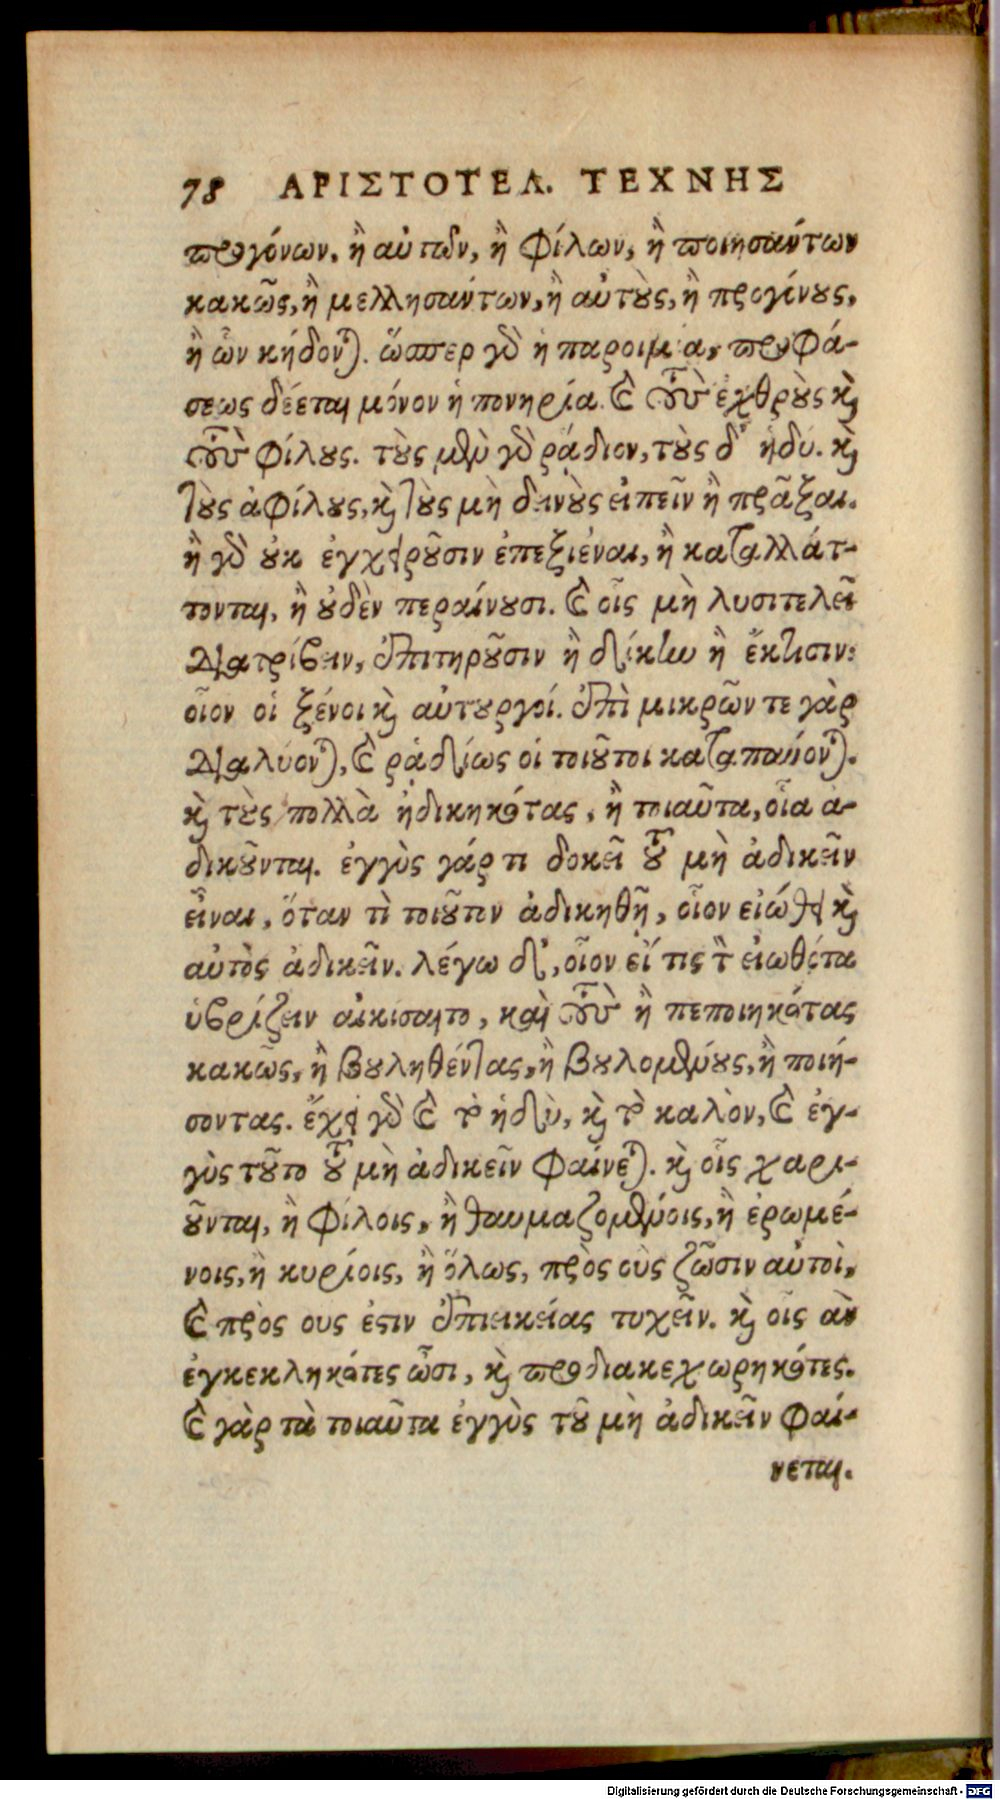 78 ΑΡΙΣΤΟΤΕΛ. ΤΕΧΝΗΣ
προγόνων, ἢ αὐτῶν, ἢ φίλων, ἢ ποιησάντων
κακῶς, ἢ μελλησάντων, ἢ αὐτοὺς, ἢ προγόνους,
ἢ ὧν κήδονται. ὥσπερ γὰρ ἡ παροιμία, προφά-
σεως δέεται μόνον ἡ πονηρία. καὶ τοὺς ἐχθροὺς καὶ
τοὺς φίλους. τοὺς μὲν γὰρ ῥάδιον, τοὺς δ' ἡδύ. καὶ
τοὺς ἀφίλους, καὶ τοὺς μὴ δεινοὺς εἰπεῖν ἢ πρᾶξαι.
ἢ γὰρ οὐκ ἐγχειροῦσιν ἐπεξιέναι, ἢ καταλλάτ-
τονται, ἢ οὐδὲν περαίνουσι. καὶ οἷς μὴ λυσιτελεῖ
διατρίβειν, ἐπιτηροῦσιν ἢ δίκην ἢ ἔκτισιν:
οἷον οἱ ξένοι καὶ αὐτουργοί. ἐπὶ μικρῶν τε γὰρ
διαλύονται, καὶ ῥᾳδίως οἱ τοιοῦτοι καταπαύονται.
καὶ τοὺς πολλὰ ἠδικηκότας, ἢ τοιαῦτα, οἷα ἀ-
δικοῦνται. ἐγγὺς γάρ τι δοκεῖ τοῦ μὴ ἀδικεῖν
εἶναι, ὅταν τὶ τοιοῦτον ἀδικηθῇ, οἷον εἰώθει καὶ
αὐτὸς ἀδικεῖν. λέγω δ', οἷον εἴ τις τὸν εἰωθότα
ὑβρίζειν αἰκίσαιτο, καὶ τοὺς ἢ πεποιηκότας
κακῶς, ἢ βουληθέντας, ἢ βουλομένους, ἢ ποιή-
σοντας. ἔχει γὰρ καὶ τὸ ἡδὺ, καὶ τὸ καλὸν, καὶ ἐγ-
γὺς τοῦτο τοῦ μὴ ἀδικεῖν φαίνεται. καὶ οἷς χαρι-
οῦνται, ἢ φίλοις, ἢ θαυμαζομένοις, ἢ ἐρωμέ-
νοις, ἢ κυρίοις, ἢ ὅλως, πρὸς οὓς ζῶσιν αὐτοὶ,
καὶ πρὸς ους ἐστιν ἐπιεικείας τυχεῖν. καὶ οἷς ἂν
ἐγκεκληκότες ὦσι, καὶ προδιακεχωρηκότες.
καὶ γὰρ τὰ τοιαῦτα ἐγγὺς τοῦ μὴ ἀδικεῖν φαί-
νεται.
Digitalisierung gefördert durch die Deutsche Forschungsgemeinschaft - DFG